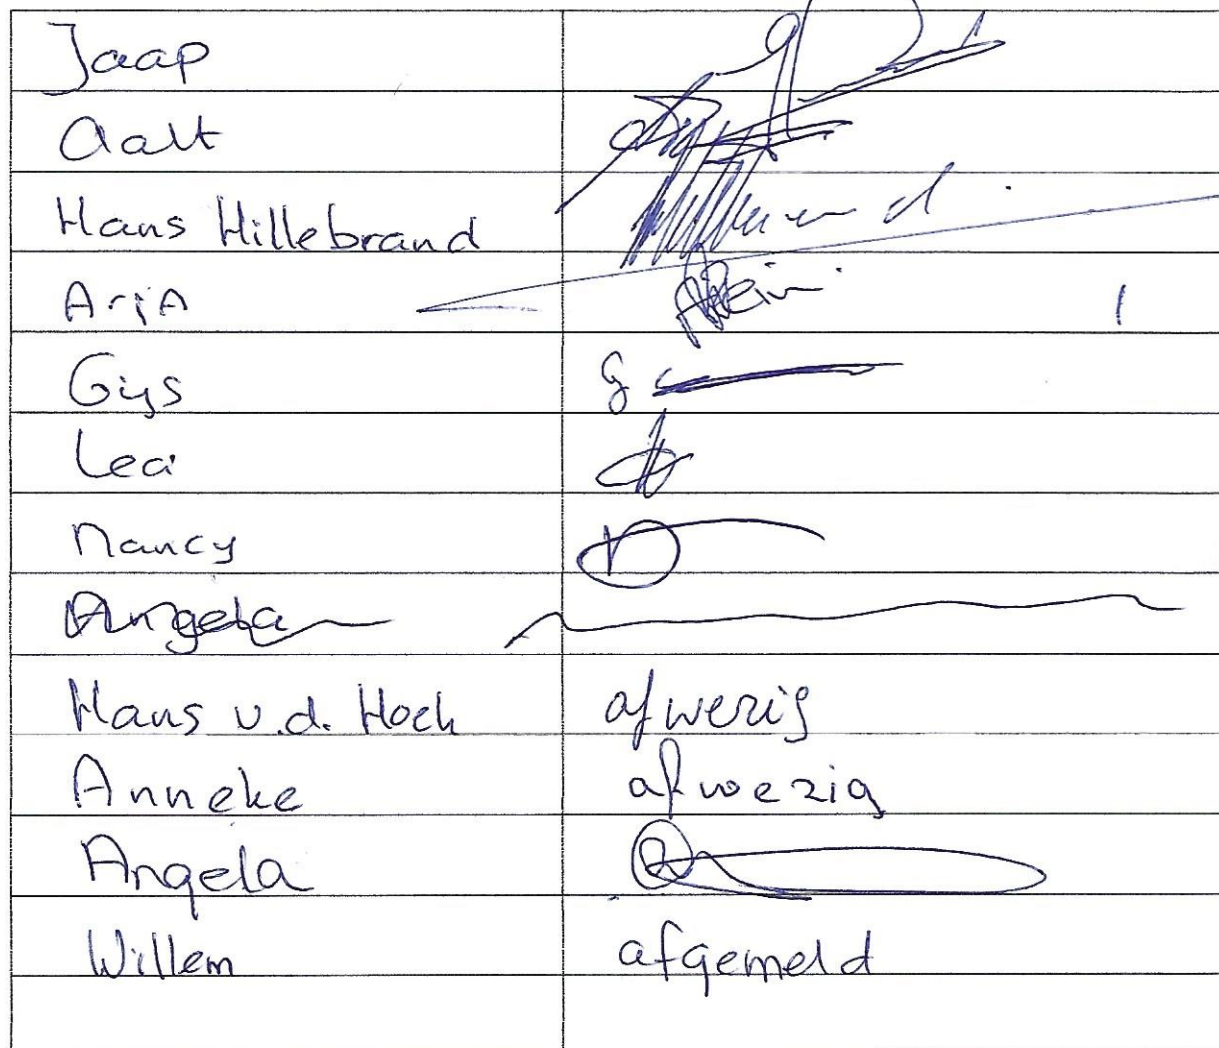 Jaap
Aalt
Hans Hillebrand
ArjA
Gijs
Lea
Nancy
Angela
Hans v.d. Hoek afwezig
Anneke afwezig
Angela
Willem afgemeld